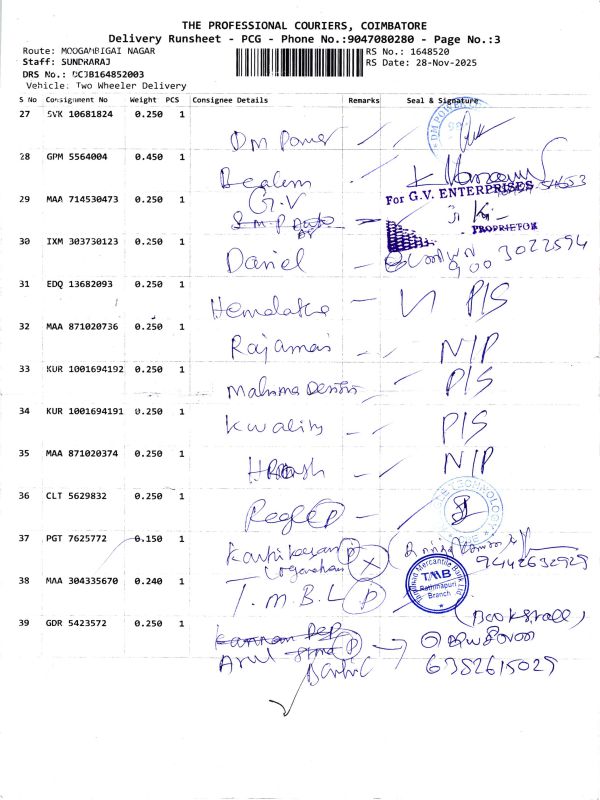 THE PROFESSIONAL COURIERS, COIMBATORE
Delivery Runsheet - PCG - Phone No.:9047080280 - Page No.:3
Route: MOOGAMBIGAI NAGAR RS No.: 1648520
Staff: SUNDHARAJ RS Date: 28-Nov-2025
DRS No.: DCJB164852003
Vehicle: Two Wheeler Delivery
S No Consignment No Weight PCS Consignee Details Remarks Seal & Signature
27 SVK 10681824 0.250 1 DM Power
28 GPM 5564004 0.450 1
29 MAA 714530473 0.250 1 G.V For G.V. ENTERPRISES
PROPRIETOR
30 IXM 303730123 0.250 1 Daniel 900 3022594
31 EDQ 13682093 0.250 1 Hemalatha P/S
32 MAA 871020736 0.250 1 Rajamani N/P
33 KUR 1001694192 0.250 1 P/S
34 KUR 1001694191 0.250 1 Kwality P/S
35 MAA 871020374 0.250 1 N/P
36 CLT 5629832 0.250 1
37 PGT 7625772 0.150 1 Karthikesan P X 9442632929
38 MAA 304335670 0.240 1 T.M.B.L P TMB Rathinapuri Branch
39 GDR 5423572 0.250 1 P (Book stall)
Arul 6382615029